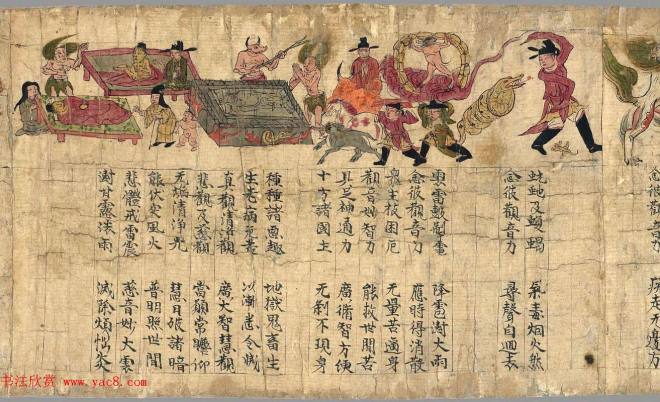 念彼觀音力 疾走无邊方
蚖虵及蝮蝎 氣毒烟火然
念彼觀音力 尋聲自迴去
雲雷鼓掣電 降雹澍大雨
念彼觀音力 應時得消散
衆生被困厄 无量苦逼身
觀音妙智力 能救世間苦
具足神通力 廣脩智方便
十方諸國土 无刹不現身
種種諸惡趣 地獄鬼畜生
生老病死苦 以漸悉令滅
真觀清淨觀 廣大智慧觀
悲觀及慈觀 當願常瞻仰
无垢清淨光 慧日破諸暗
能伏灾風火 普明照世間
悲體戒雷震 慈音妙大雲
澍甘露法雨 滅除煩惱炎
书法欣赏 www.yac8.com